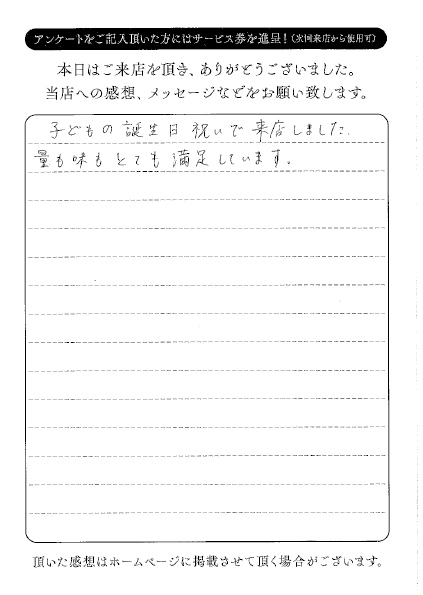 アンケートをご記入頂いた方にはサービス券を進呈！（次回来店から使用可）
本日はご来店を頂き、ありがとうございました。
当店への感想、メッセージなどをお願い致します。
子どもの誕生日祝いで来店しました。
量も味もとても満足しています。
頂いた感想はホームページに掲載させて頂く場合がございます。